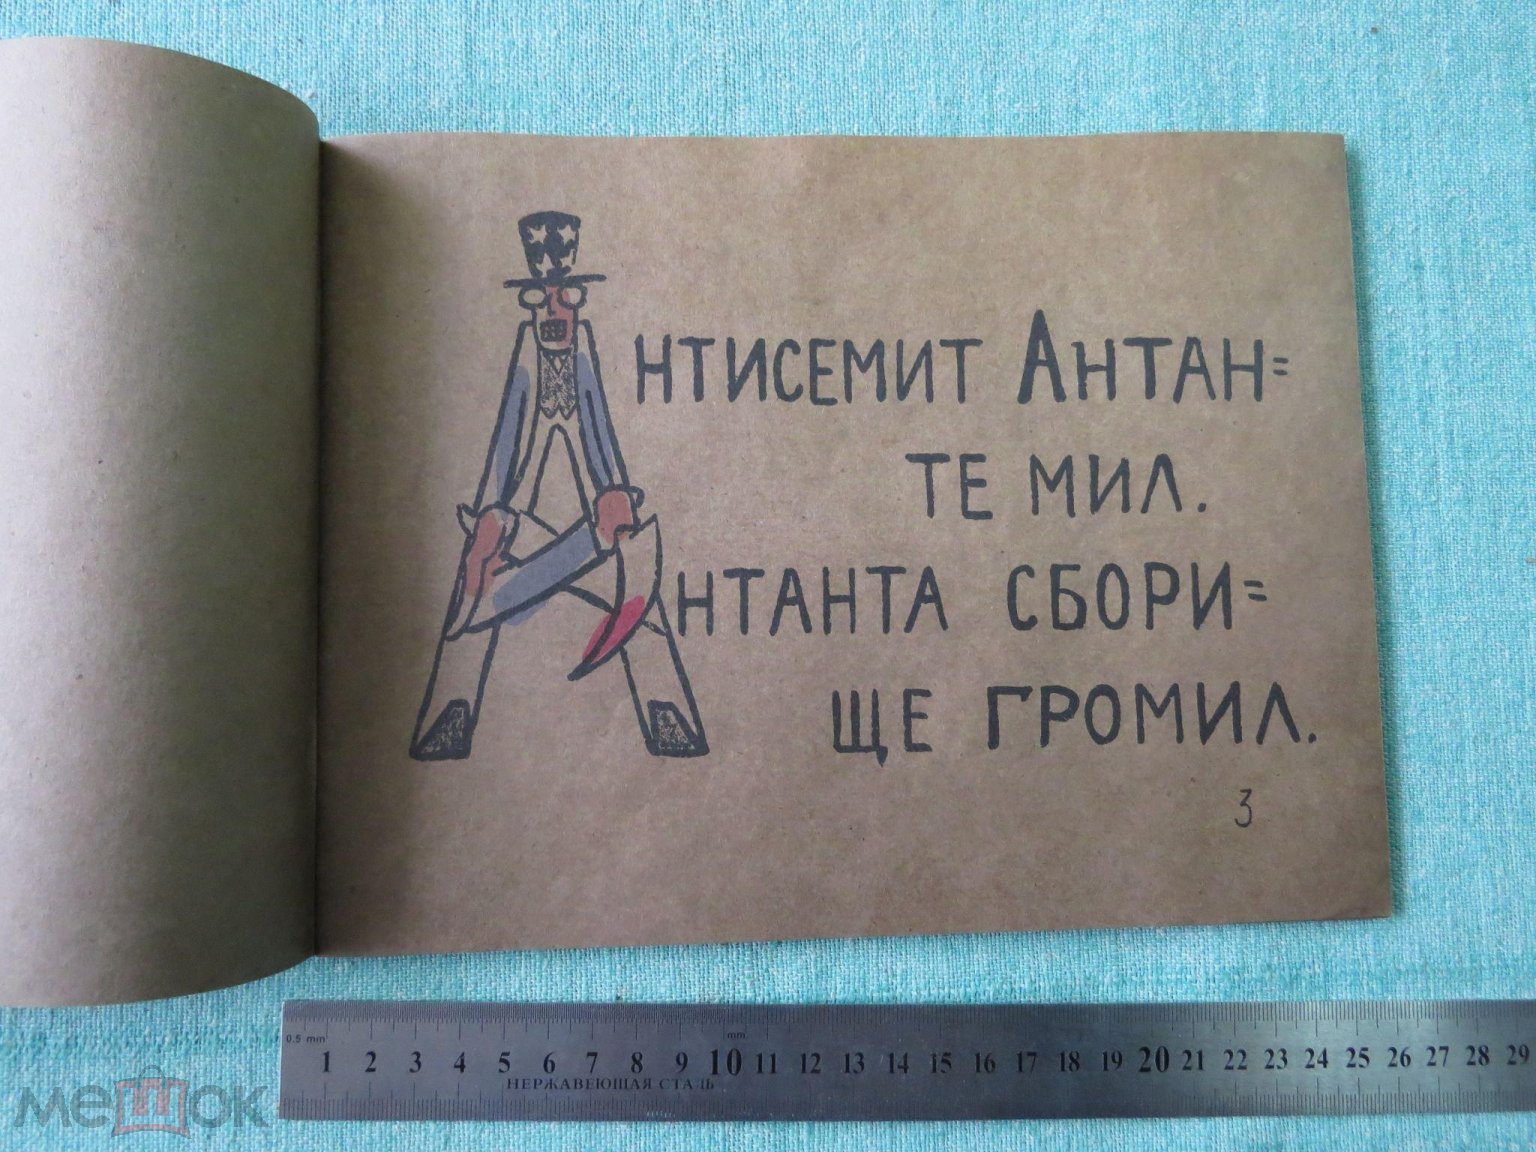 АНТИСЕМИТ АНТАН=
ТЕ МИЛ.
АНТАНТА СБОРИ=
ЩЕ ГРОМИЛ.
3
0.5 mm
mm.
1 2 3 4 5 6 7 8 9 10 11 12 13 14 15 16 17 18 19 20 21 22 23 24 25 26 27 28 29
НЕРЖАВЕЮЩАЯ СТАЛЬ
мешок